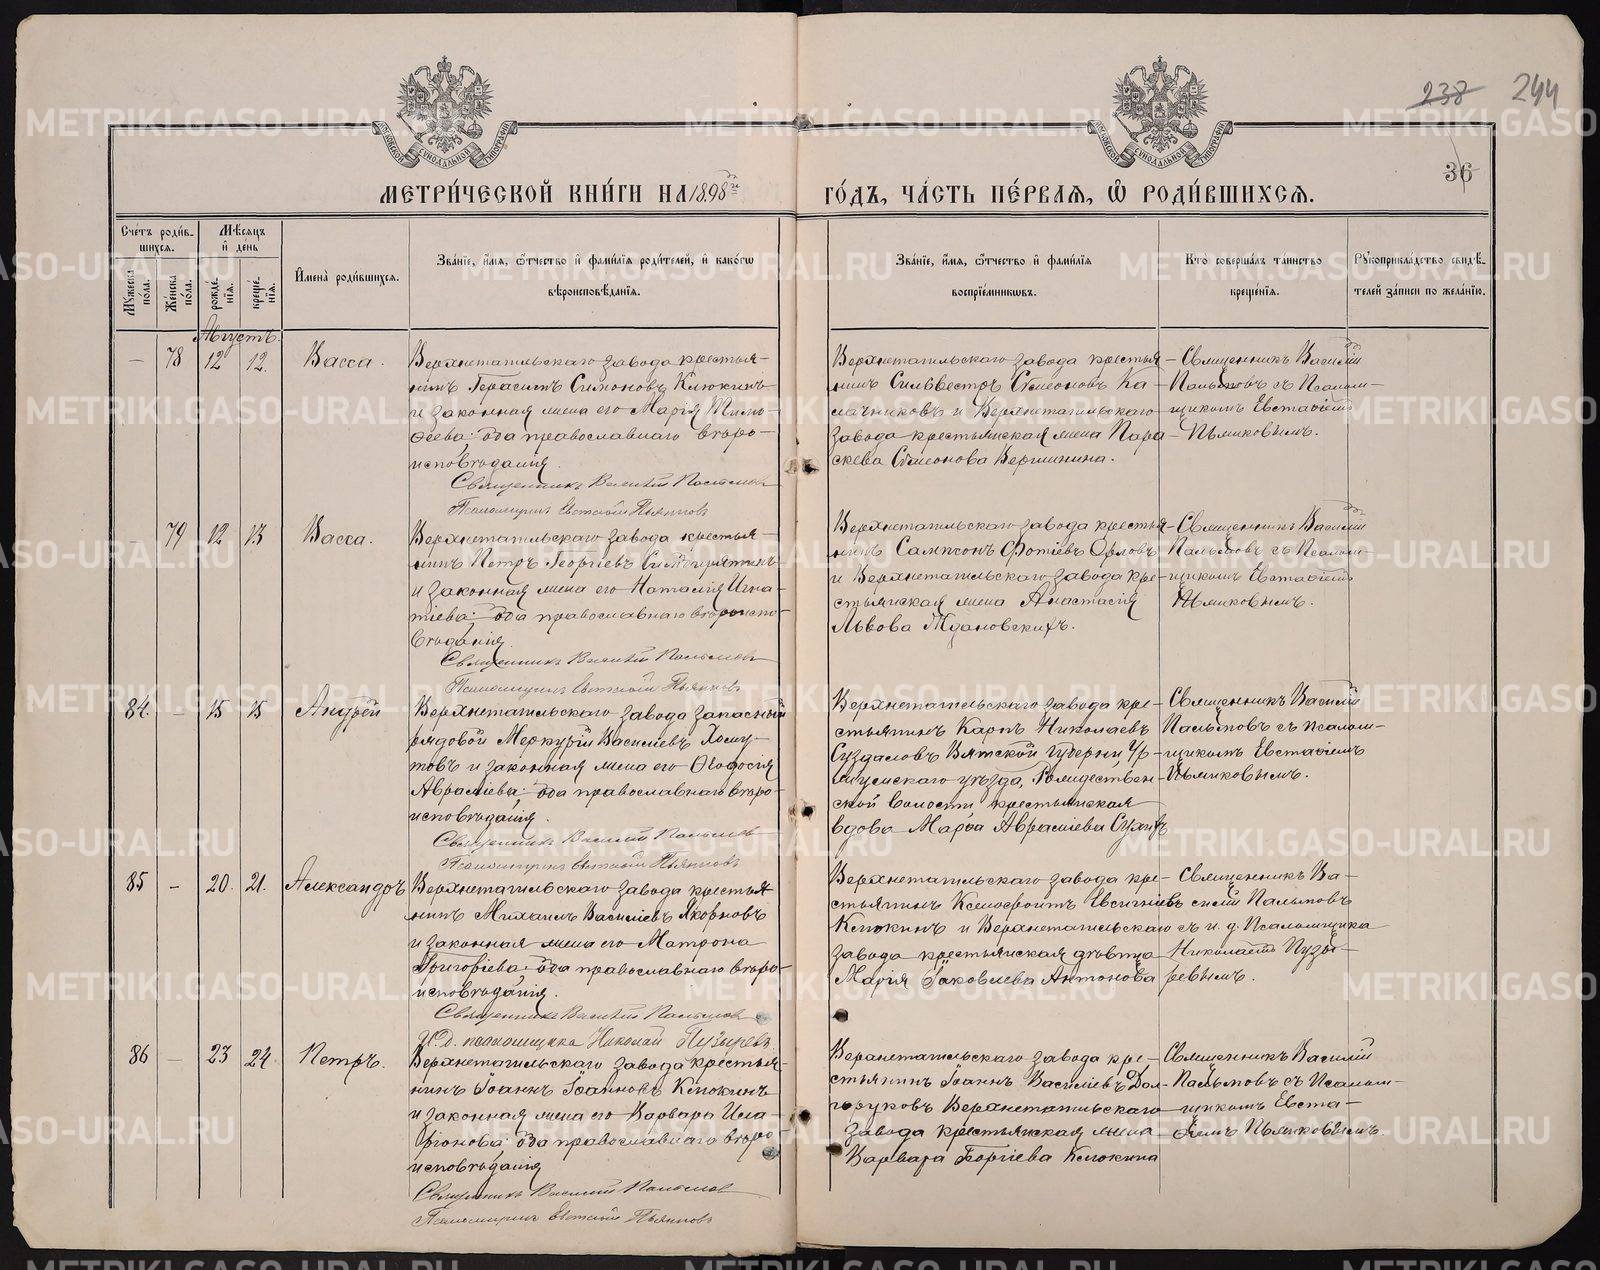 238 244
36
МОСКОВСКОЙ СѴНОДАЛЬНОЙ ТИПОГРАФІИ
МОСКОВСКОЙ СѴНОДАЛЬНОЙ ТИПОГРАФІИ
МЕТРИ́ЧЕСКОЙ КНИ́ГИ НА 1898й ГО́ДЪ, ЧА́СТЬ ПЕ́РВАѦ, Ѽ РОДИ́ВШИХСѦ.
Сче́тъ роди́в-
шихсѧ.
Мꙋ́жеска по́ла.
Же́нска по́ла.
Мѣ́сѧцъ и҆ де́нь
рожде́-нїѧ.
креще́-нїѧ.
И҆мена̀ роди́вшихсѧ.
Зва́нїе, и҆́мѧ, ѻ҆́тчество и҆ фами́лїѧ роди́телей, и҆ како́гѡ
вѣроисповѣ́данїѧ.
Зва́нїе, и҆́мѧ, ѻ҆́тчество и҆ фами́лїѧ
воспрїе́мникѡвъ.
Кто̀ соверша́лъ та́инство
креще́нїѧ.
Рꙋкоприкла́дство свидѣ́-
телей за́писи по жела́нїю.
Августъ.
— 78 12 12. Васса.
Верхнетагильскаго завода крестья-
нинъ Герасимъ Симоновъ Клюкинъ
и законная жена его Марія Тимо-
ѳеева; оба православнаго вѣро-
исповѣданія.
Священникъ Василій Пальмовъ
Псаломщикъ Евстафій Пьянковъ
Верхнетагильскаго завода крестья-
нинъ Сильвестръ Симеоновъ Ка-
лачниковъ и Верхнетагильскаго
завода крестьянская жена Пара-
скева Симеонова Вершинина.
Священникъ Василій
Пальмовъ съ Псалом-
щикомъ Евстафіемъ
Пьянковымъ.
— 79 12 13 Васса.
Верхнетагильскаго завода крестья-
нинъ Петръ Георгіевъ
и законная жена его Наталія Игна-
тіева; оба православнаго вѣроиспо-
вѣданія.
Священникъ Василій Пальмовъ
Псаломщикъ Евстафій Пьянковъ
Верхнетагильскаго завода крестья-
нинъ Сампсонъ Фотіевъ Орловъ
и Верхнетагильскаго завода кре-
стьянская жена Анастасія
Львова Ждановскихъ.
Священникъ Василій
Пальмовъ съ Псалом-
щикомъ Евстафіемъ
Пьянковымъ.
84. — 15 15 Андрей
Верхнетагильскаго завода запасный
рядовой Меркурій Василіевъ Хому-
товъ и законная жена его Ѳеодосія
Авраміева; оба православнаго вѣро-
исповѣданія.
Священникъ Василій Пальмовъ
Псаломщикъ Евстафій Пьянковъ
Верхнетагильскаго завода кре-
стьянинъ Карпъ Николаевъ
Суздаловъ Вятской губерніи, Ур-
жумскаго уѣзда, Рождествен-
ской волости крестьянская
вдова Марѳа Авраміева Сухихъ
Священникъ Василій
Пальмовъ съ псалом-
щикомъ Евстафіемъ
Пьянковымъ.
85 — 20. 21. Александръ
Верхнетагильскаго завода крестья-
нинъ Михаилъ Василіевъ Яковновъ
и законная жена его Матрона
Григоріева; оба православнаго вѣро-
исповѣданія.
Священникъ Василій Пальмовъ
И.д. псаломщика Николай Пузыревъ.
Верхнетагильскаго завода кре-
стьянинъ Ксенофонтъ Евсигніевъ
Клюкинъ и Верхнетагильскаго
завода крестьянская дѣвица
Марія Іаковлева Антонова
Священникъ Ва-
силій Пальмовъ
съ и. д. Псаломщика
Николаемъ Пузы-
ревымъ.
86 — 23 24. Петръ.
Верхнетагильскаго завода крестья-
нинъ Іоаннъ Іоанновъ Клюкинъ
и законная жена его Варвара Ила-
ріонова; оба православнаго вѣро-
исповѣданія
Священникъ Василій Пальмовъ
Псаломщикъ Евстафій Пьянковъ
Верхнетагильскаго завода кре-
стьянинъ Іоаннъ Василіевъ Дол-
горуковъ Верхнетагильскаго
завода крестьянская жена
Варвара Георгіева Клюкина
Священникъ Василій
Пальмовъ съ Псалом-
щикомъ Евста-
фіемъ Пьянковымъ.
METRIKI.GASO-URAL.RU